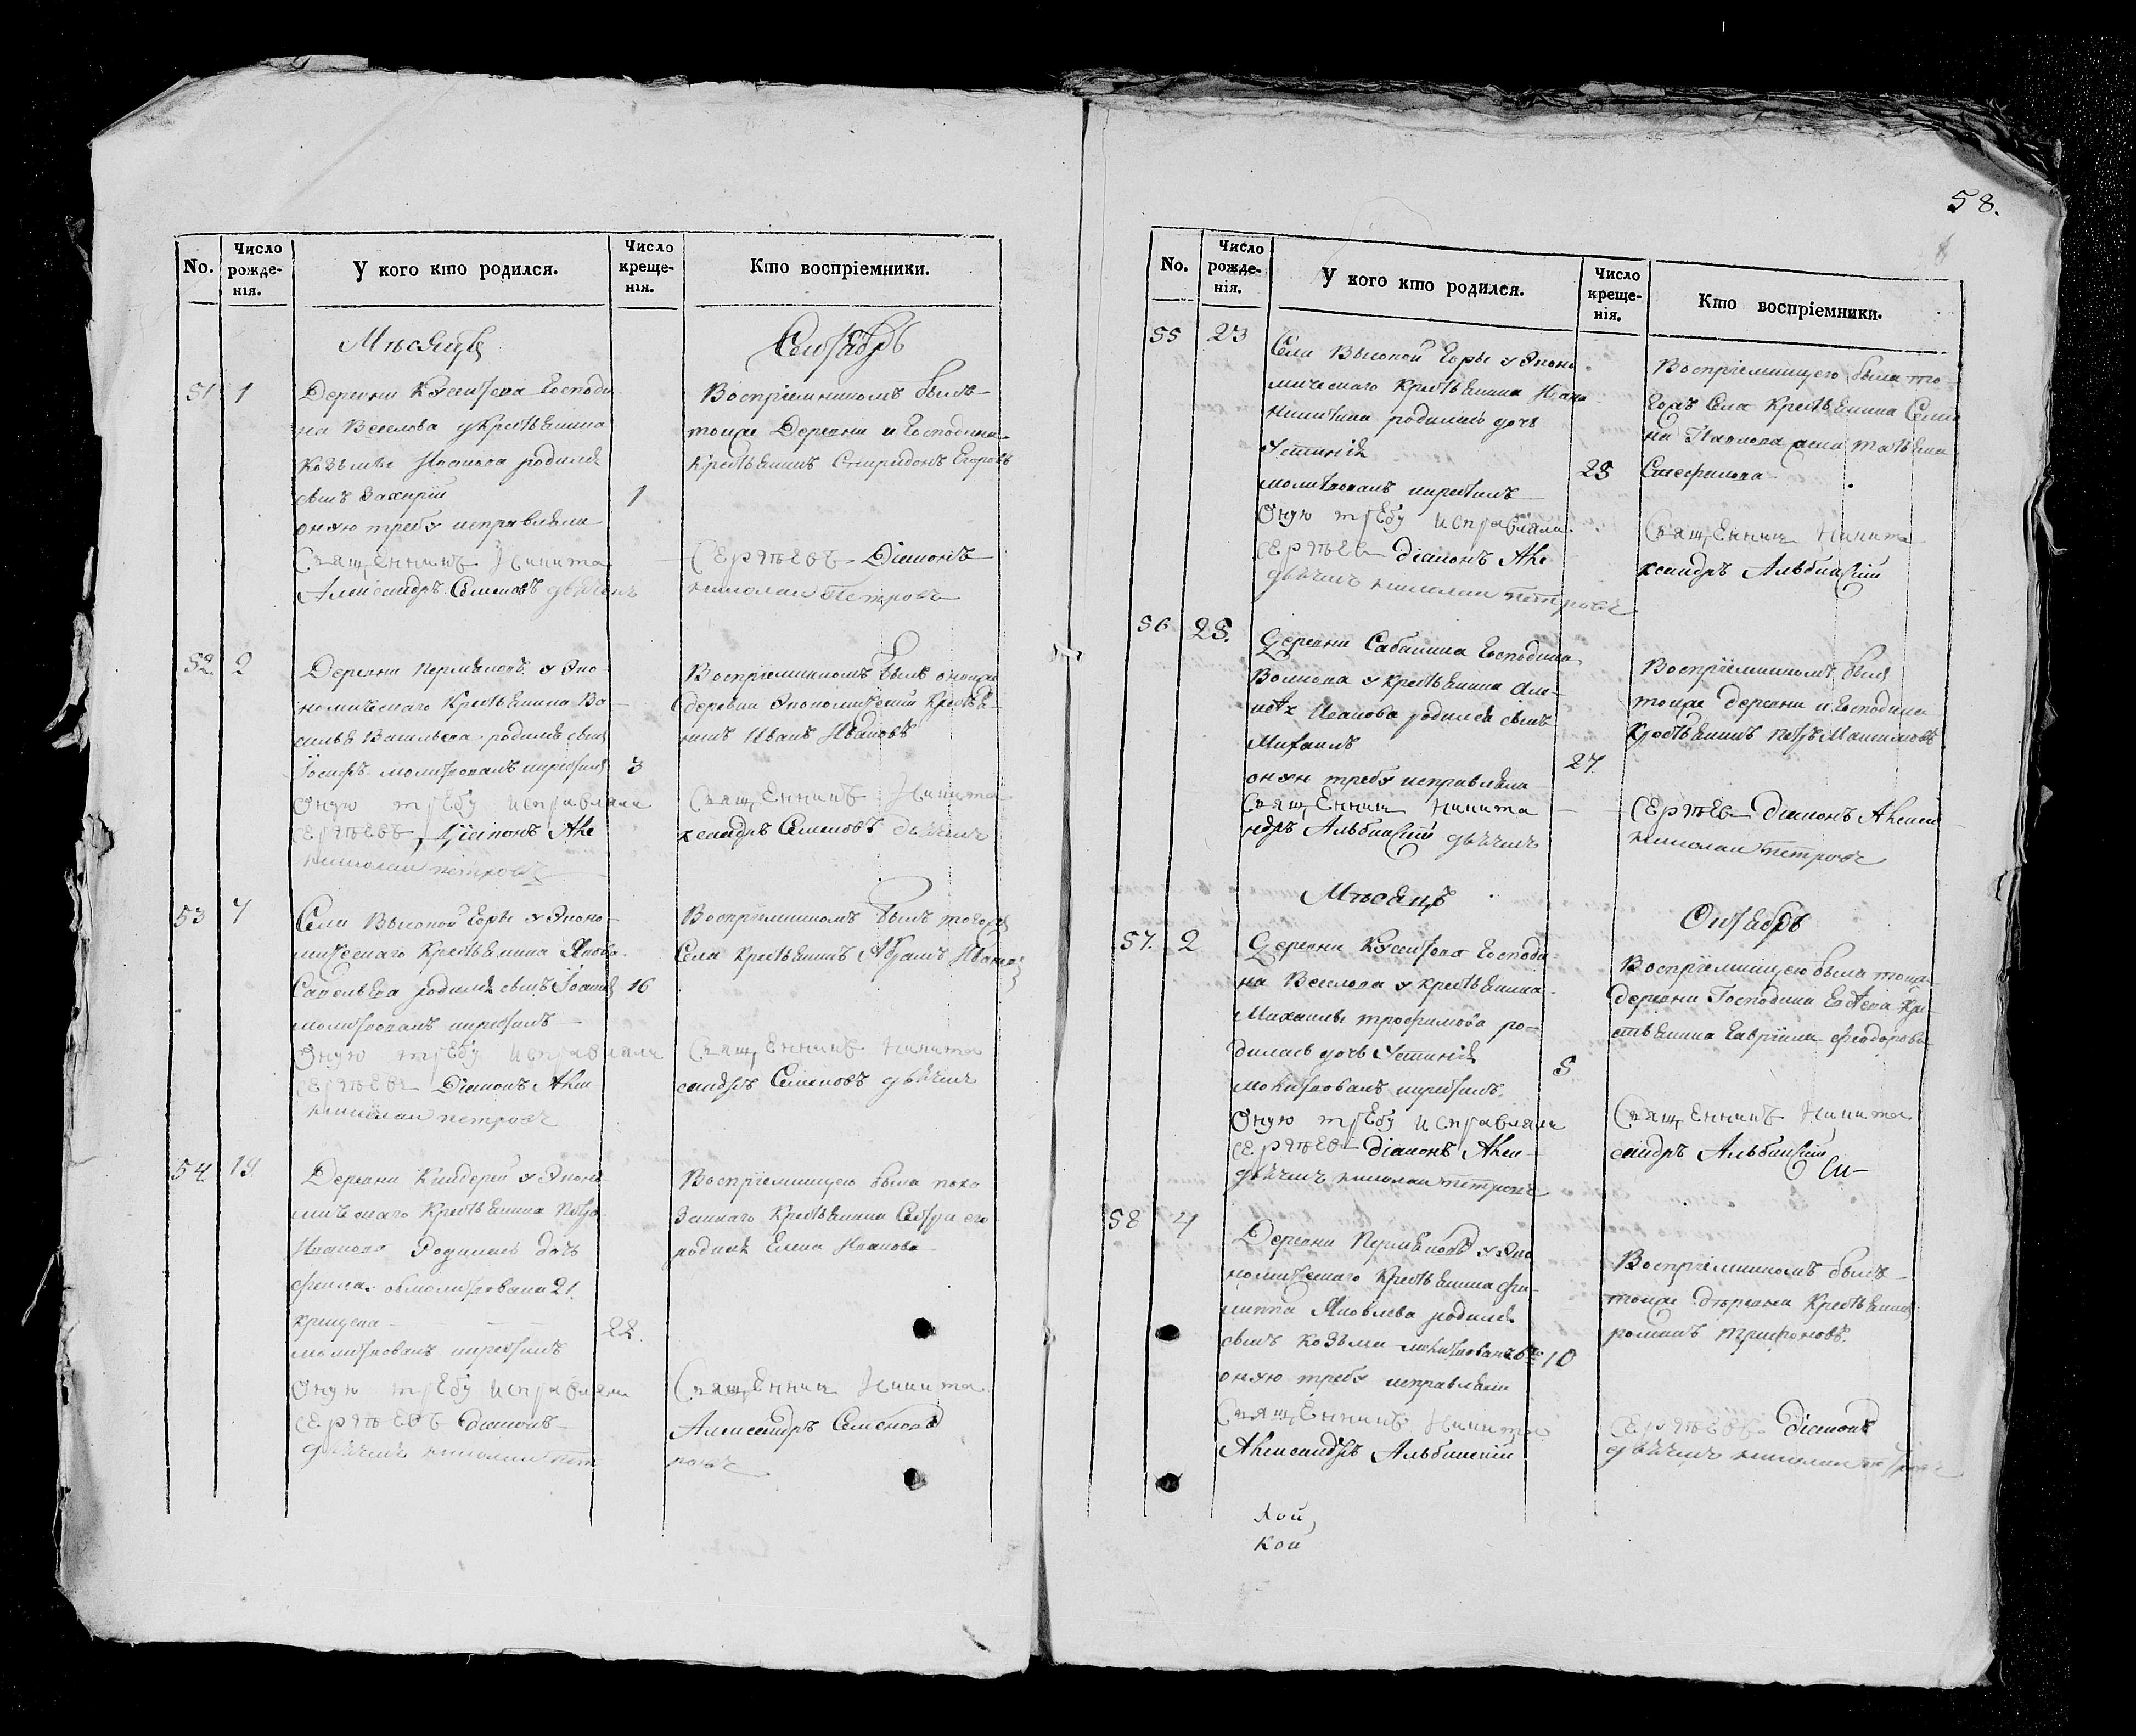 No.
Число рожденія.
У кого кто родился.
Число крещенія.
Кто воспріемники.
Мѣсяцъ
Сентябрь
51
1
Деревни Госпо​ди-
на Веселова у крестьянина
Козьмы Иванова родился
сынъ Захарій
1
оную требу исправляли
Священникъ Никита
Александръ Семеновъ дьячекъ
Воспріемникомъ былъ
тоиже Деревни и Господина
крестьянинъ Спиридонъ Егоровъ
Сергѣевъ Діаконъ
николай Петровъ
52
2
Деревни Пермяковъ у Эко-
номическаго Крестьянина Ва-
силья Васильева родился сынъ
Іосифъ молитвовалъ икрестилъ
3
Оную требу исправляли
Сергѣевъ Діаконъ Але
николай петровъ
Воспріемникомъ былъ оноиже
деревни Экономической Крестья-
нинъ Иванъ Ивановъ
Священникъ Никита
ксандръ Семеновъ дьячекъ
53
7
Села Высокой Горы у Эконо-
мическаго Крестьянина Якова
Савельева родился сынъ Іоаннъ
16
молитвовалъ икрестилъ
Оную требу исправляли
Сергѣевъ Діаконъ Алек
николай петровъ
Воспріемникомъ былъ тогоже
Села Крестьянинъ Абрамъ Ивановъ
Священникъ Никита
сандръ Семеновъ дьячекъ
54
19
Деревни Киндерей у Эконо
мическаго Крестьянина Петра
Иванова Родилась дочь
Фекла обмолитвована 21.
крещена
22.
молитвовалъ икрестилъ
Оную требу исправляли
Сергѣевъ діаконъ
дьячекъ николай пет
Воспріемницею была пока
заннаго Крестьянина Сестра его
родная Елена Иванова
Священник Никита
Александръ Семеновъ
ровъ
58.
No.
Число рожденія.
У кого кто родился.
Число крещенія.
Кто воспріемники.
55
23
Села Высокой Горы у Эконо
мическаго Крестьянина Ивана
Никитина родилась дочь
Устинія
25
молитвовалъ икрестилъ
Оную требу исправляли
Сергѣев діаконъ Але
дьячекъ николай петровъ
Воспріемницею была то
гожъ Села Крестьянина Семе
на Павлова жена Татьяна
Стефанова
Священник Никита
ксандръ Альбинскій
56
25.
Деревни Сабакина Господина
Волкова у крестьянина Але-
ксѣя Иванова родился сынъ
Михаилъ
27.
оную требу исправляли
Священник Никита
ндръ Альбинскій дьячекъ
Воспріемникомъ былъ
тоиже деревни и Господина
Крестьянинъ Петръ Максимовъ
Сергѣев діаконъ Алекса
николай петровъ
Мѣсяцъ
Октябрь
57.
2
Деревни Господи-
на Веселова у крестьянина
Михаилы трофимова ро-
дилась дочь Устинія
5
молитвовалъ икрестилъ.
Оную требу исправляли
Сергѣевъ діаконъ Алек-
дьячекъ николай петровъ
Воспріемницею была тоиже
деревни Господина Кре-
стьянина Гавріила Феодорова
Священникъ Никита
сандръ Альбинскій
58
4
Деревни Пермяковъ у Эко
номическаго Крестьянина Фи-
липпа Яковлева родился
сынъ Козьма молитвованъ
10
оную требу исправляли
Священникъ Никита
Александръ Альбинскій
Воспріемникомъ былъ
тоиже деревни Крестьянинъ
романъ трифоновъ.
Сергѣевъ діаконъ
дьячекъ николай петровъ
кой